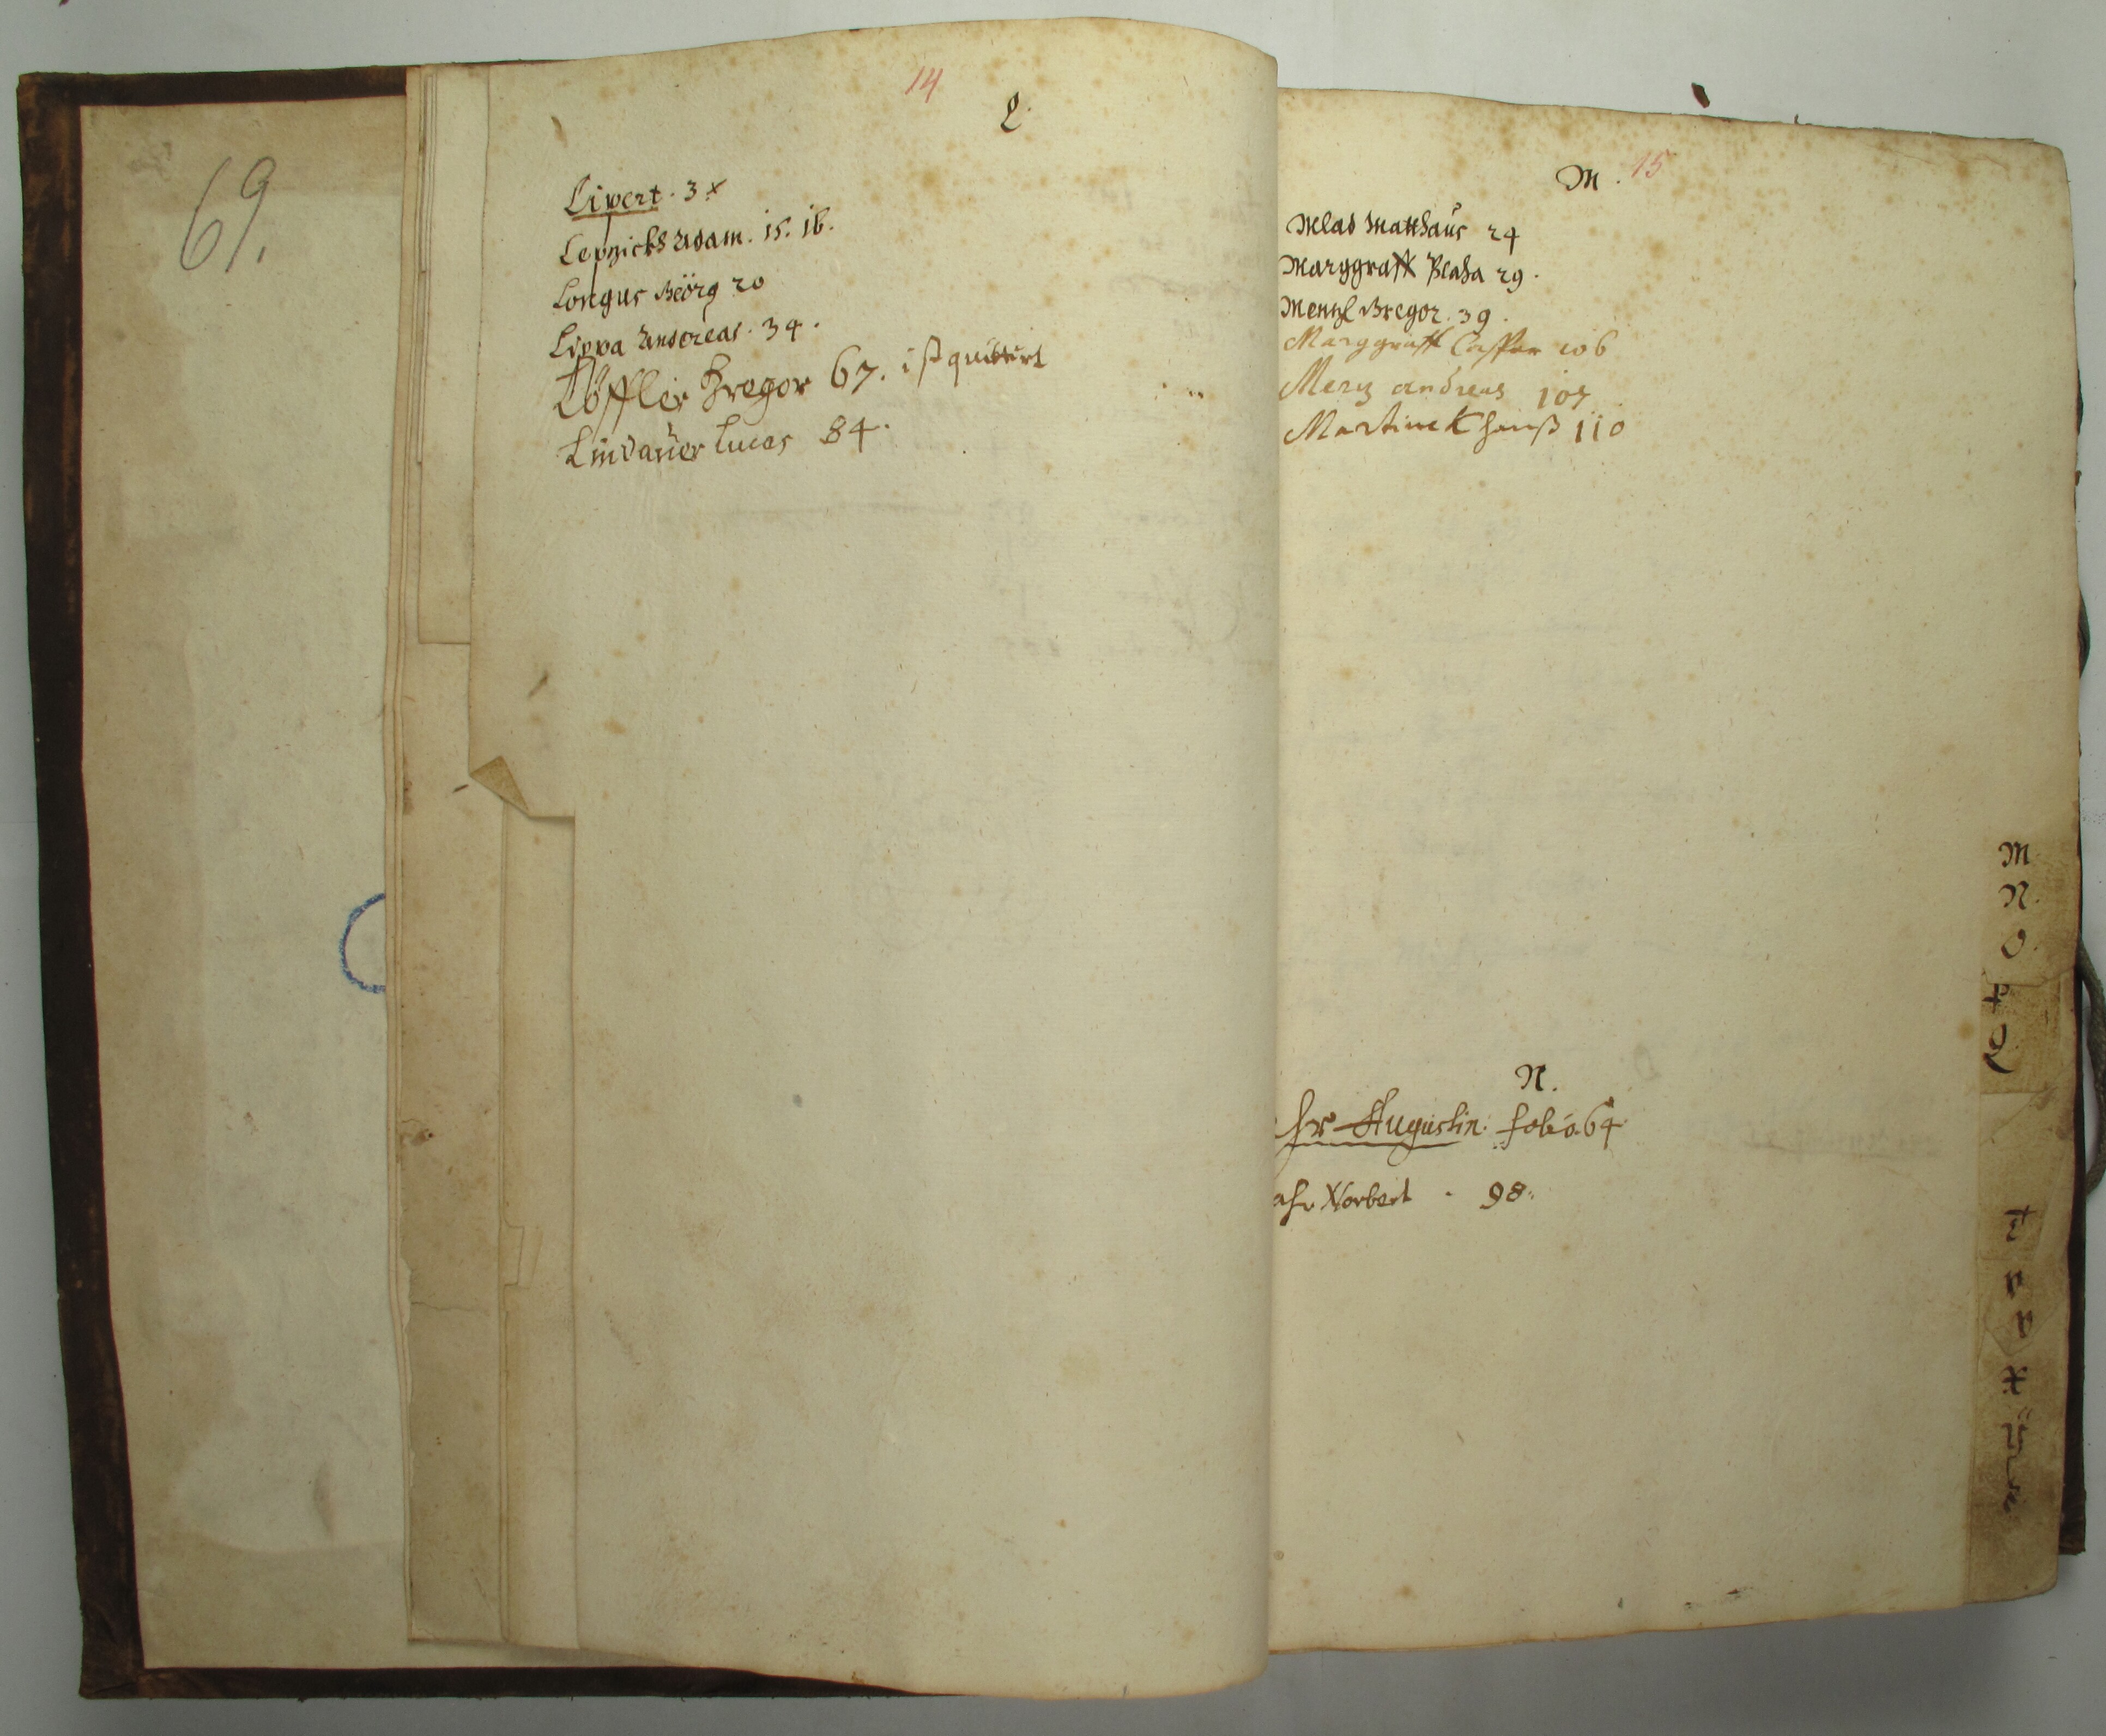 69.
14
L.
Lipert. 3 x
Leypzickh Adam. 15. 16.
Longus Geörg 20
Lippa Andreas. 34.
Löffler Gregor 67. ist quittirt
Lindauer Lucas 84.
M. 15
Mlad Matthaus 24
Marggraff Blaha 29.
Mentzl Gregor. 39.
Marggraff Casspar 106
Mertz andreas 107
Martinek hanß 110
N.
hr Augustin. folio. 64
ahr Norbert - 98.
M
N.
O.
P
Q
T
V
X